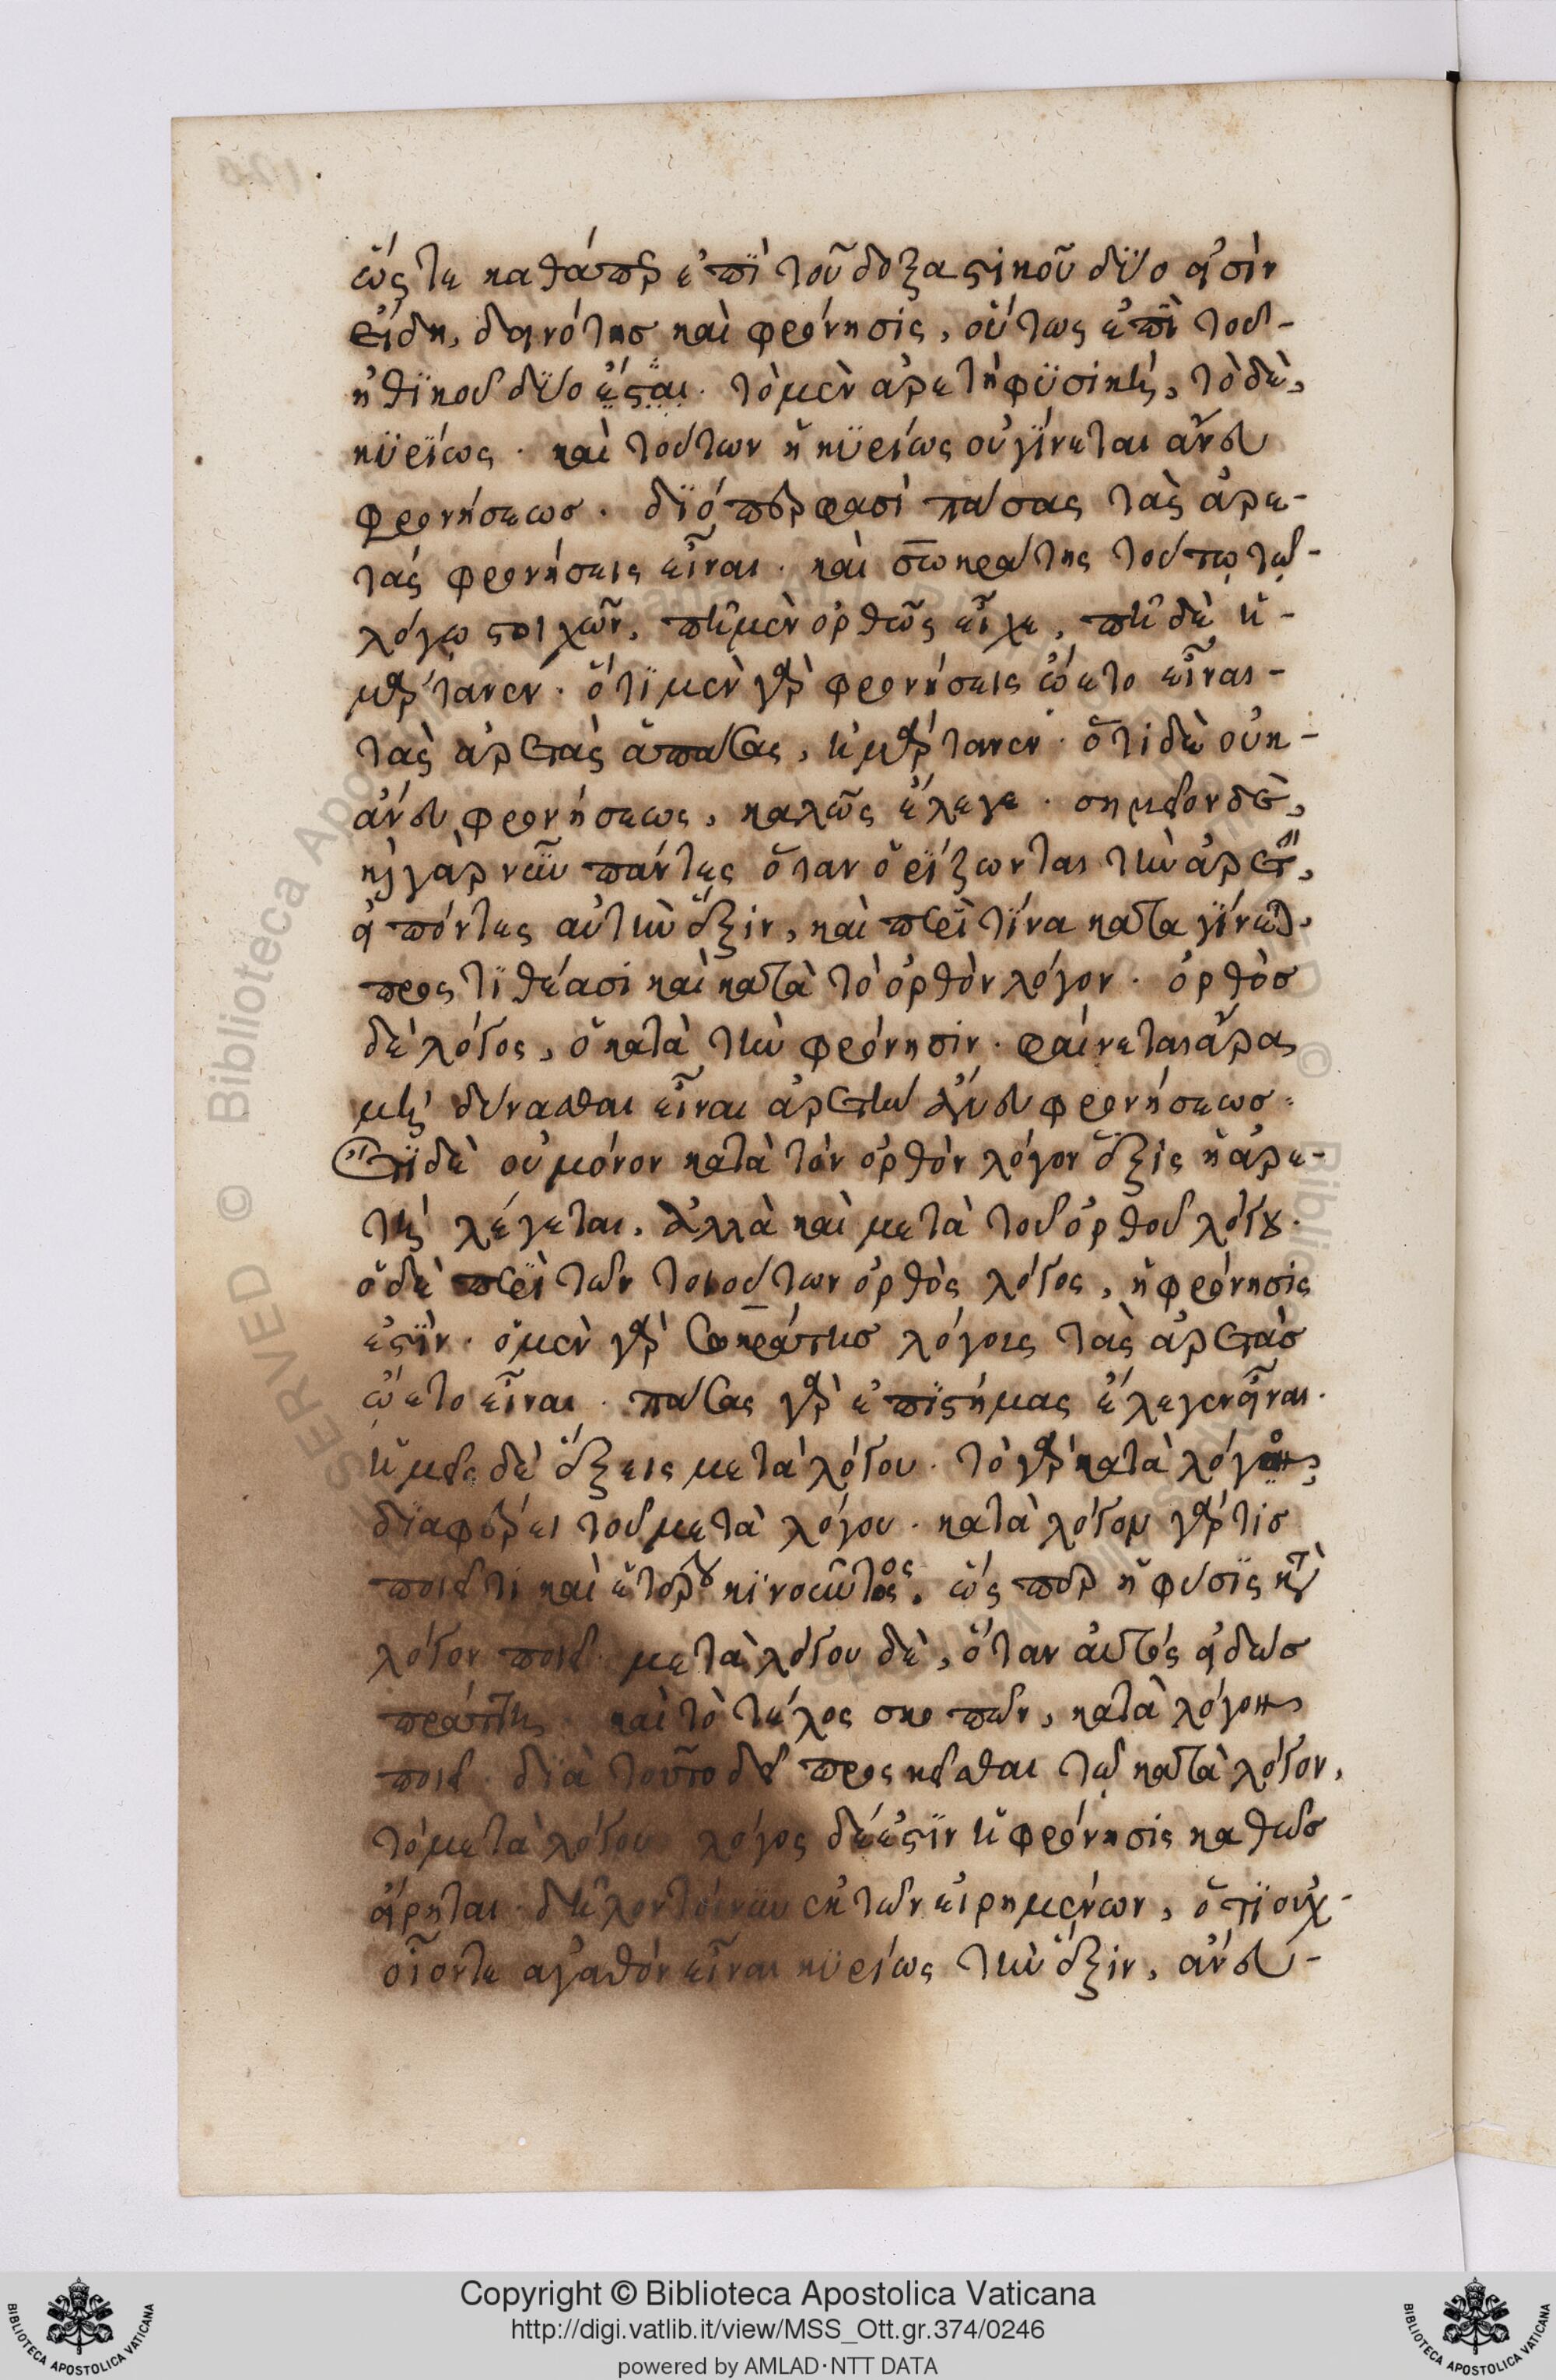 ὥς τε καθάπερ ἐπῒ τοῦ δοξαστικοῦ δΰο εἰσὶν
εἴδη, δεινότησ καὶ φρόνησις, οὕτως ἐπὶ τοῦ-
ἠθϊκοῦ δΰο ἔσται· τὸ μὲν ἀρετὴ φϋσικὴ, τὸ δὲ,
κϋρΐως· καὶ τούτων ἡ κϋρίως οὐ γΐνεται ἄνευ
φρονήσεωσ· δϊόπερ φασὶ πάσας τὰς ἀρε-
τάς φρονήσεις εἶναι· καὶ σωκράτης τούτῳ τῷ-
λόγῳ στοιχῶν, πῆ μὲν ὀρθῶς εἶχε, πῆ δὲ ἡ-
μάρτανεν· ὅτϊ μὲν γὰρ φρονήσεις ᾤετο εἶναι-
τὰς ἀρετὰς ἁπάσας, ἡμάρτανεν· ὅτι δὲ οὐκ-
ἄνευ φρονήσεως, καλῶς ἔλεγε· σημεῖον δὲ,
καὶ γὰρ νῦν πάντες ὅταν ὁρΐζωνται τὴν ἀρετὴν,
εἰπόντες αὐτὴν ἕξιν, καὶ περῒ τίνα καταγΐνεται,
προςτϊθέασι καὶ κατὰ τὸ ὀρθὸν λόγον· ὀρθὸσ
δὲ λόγος, ὁ κατὰ τὴν φρόνησιν· φαίνεται ἄρα,
μὴ δύνασθαι εἶναι ἀρετὴν ἄνευ φρονήσεωσ·
Ἔτϊ δὲ οὐ μόνον κατὰ τὸν ὀρθὸν λόγον ἕξις ἡ ἀρε-
τὴ λέγεται, ἀλλὰ καὶ μετὰ τοῦ ὀρθοῦ λόγου·
ὁ δὲ περῒ τῶν τοιούτων ὀρθὸς λόγος, ἡ φρόνησίς
ἐστϊν· ὁ μὲν γὰρ σωκράτησ λόγοις τὰς ἀρετὰσ
ᾤετο εἶναι· πάσας γὰρ ἐπϊστήμας ἔλεγεν εἶναι·
ἡμεῖς δὲ ἕξεις μετὰ λόγου· τὸ γὰρ κατὰ λόγον,
δϊαφέρει τοῦ μετὰ λόγου· κατὰ λόγον γάρ τισ
ποιεῖ τι καὶ ἑτέρου κϊνοῦντος, ὥςπερ ἡ φύσϊς κατὰ
λόγον ποιεῖ· μετὰ λόγου δὲ, ὅταν αὐτὸς εἰδὼσ
πράττη, καὶ τὸ τέλος σκοπῶν, κατὰ λόγον
ποιεῖ· δϊὰ τοῦτο δεῖ προςκεῖσθαι τῷ κατὰ λόγον,
τὸ μετὰ λόγου λόγος δέ ἐστϊν ἡ φρόνησις καθὼσ
εἴρηται· δῆλον τοίνυν ἐκ τῶν εἰρημένων, ὅτϊ οὐχ-
οἷόντε ἀγαθὸν εἶναι κϋρίως τὴν ἕξιν, ἄνευ-
Copyright © Biblioteca Apostolica Vaticana
http://digi.vatlib.it/view/MSS_Ott.gr.374/0246
powered by AMLAD·NTT DATA